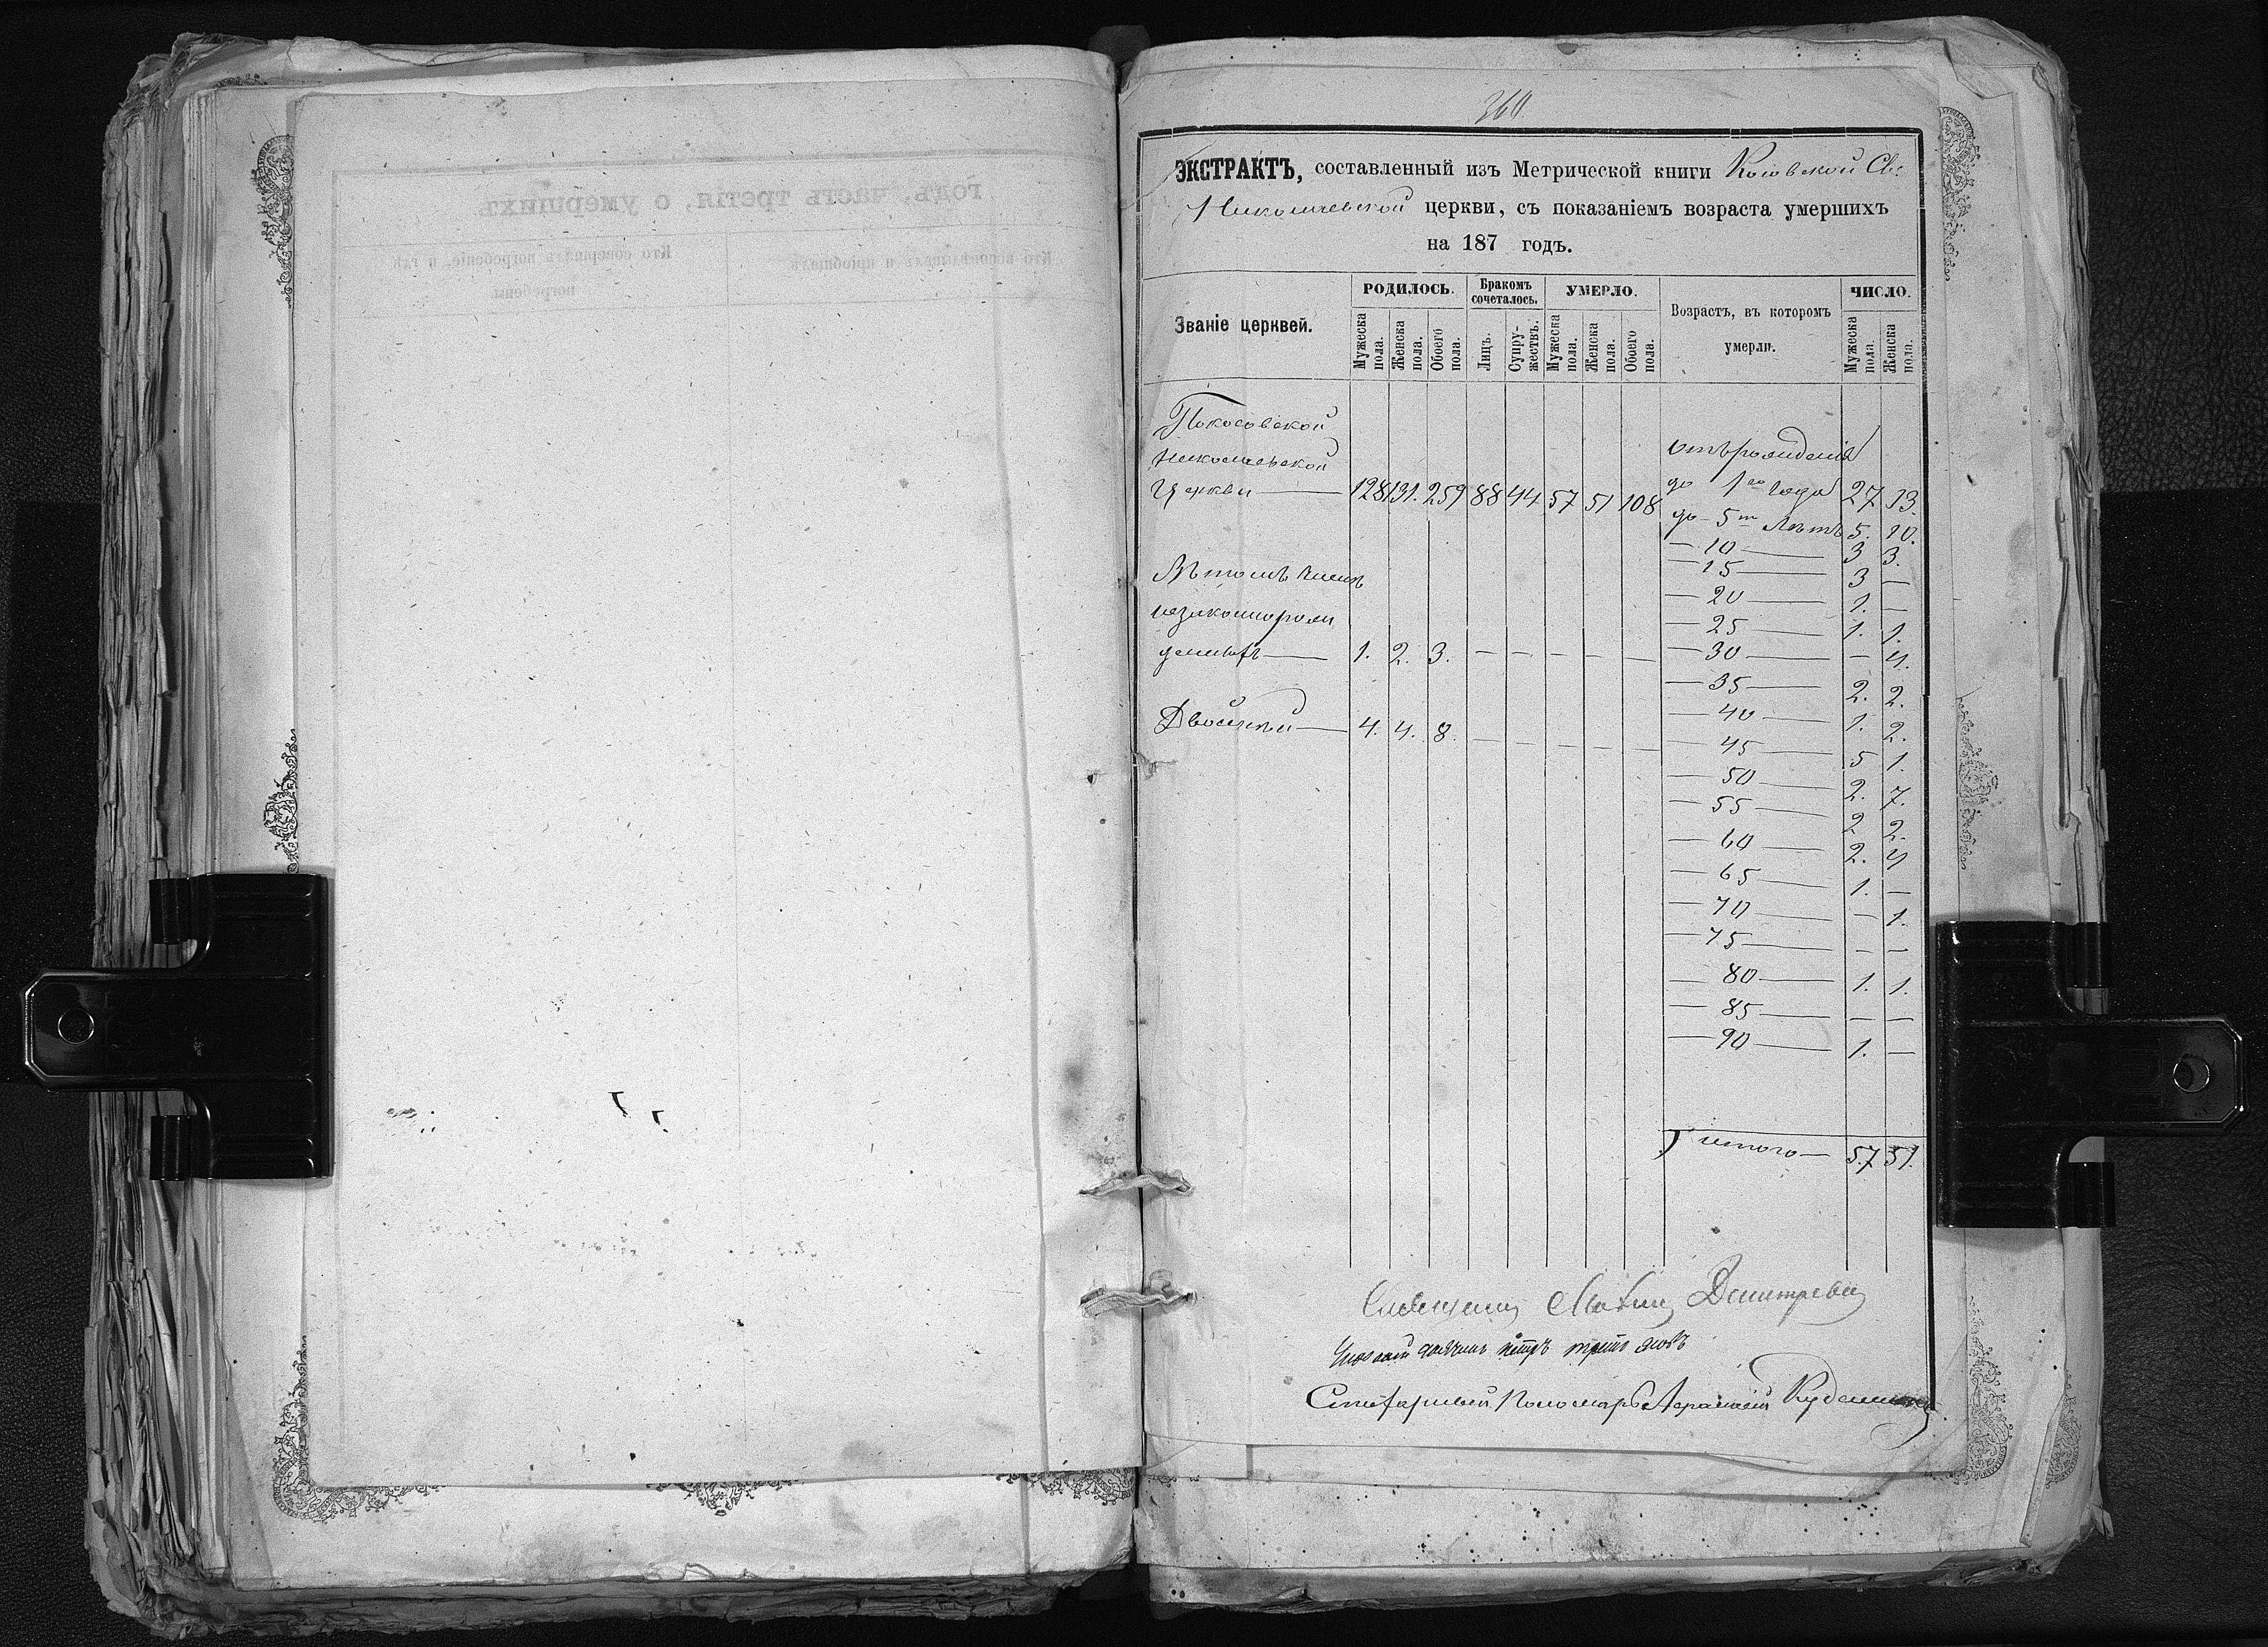 годъ, часть третія, о умершихъ
Кто исповѣдывалъ и пріобщалъ
Кто совершалъ погребеніе, и гдѣ
погребены
360
ЭКСТРАКТЪ, составленный изъ Метрической книги Косовской Св:
Николаевской церкви, съ показаніемъ возраста умершихъ
на 187 годъ.
Званіе церквей.
РОДИЛОСЬ.
Бракомъ сочеталось.
УМЕРЛО.
Возрастъ, въ которомъ умерли.
ЧИСЛО.
Мужеска пола.
Женска пола.
Обоего пола.
Лицъ.
Супружествъ.
Мужеска пола.
Женска пола.
Обоего пола.
Мужеска пола.
Женска пола.
По Косовской
Николаевской
Церкви — 128 131. 259 88 44 57 51 108
отъ рожденія
до 1го года 27 13.
до 5ти Лѣтъ 5. 10.
— 10 — 3 3.
— 15 — 3 —
— 20 — 1. —
— 25 — 1. 1.
— 30 — — 4.
— 35 — 2. 2.
— 40 — 1. 2.
— 45 — 5 1.
— 50 — 2. 7.
— 55 — 2 2.
— 60 — 2. 4
— 65 — 1. —
— 70 — — 1.
— 75 — — —
— 80 — 1. 1.
— 85 — — —
— 90 — 1. —
Въ томъ числѣ
незаконнорож
денныхъ — 1. 2. 3. — — — — —
Двойней — 4. 4. 8. — — — — —
Итого — 57 51.
Священникъ Дмитревъ
Петръ
Пономарь Кудашевъ